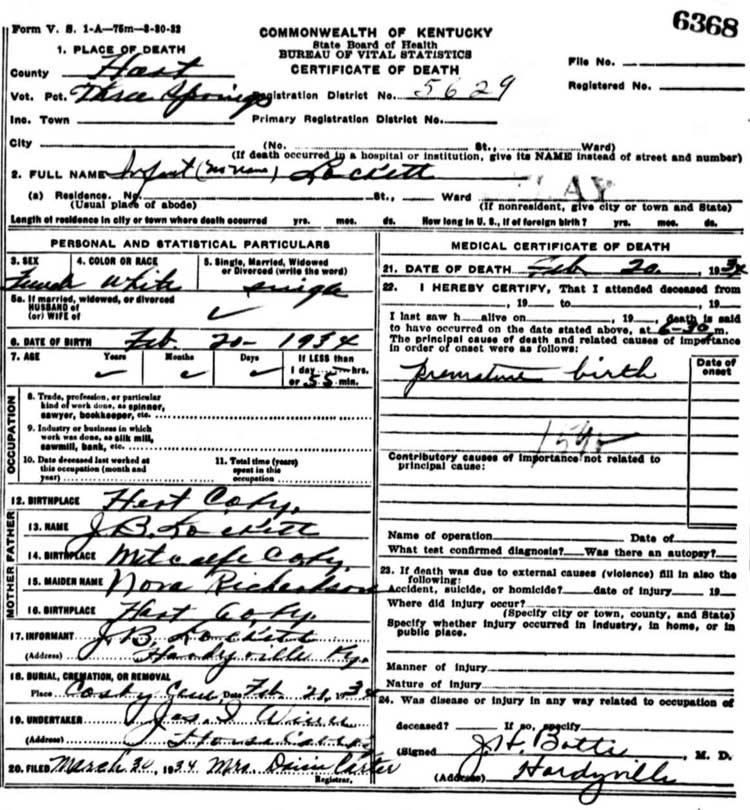 6368
Form V. S. 1-A—75m—8-30-32
COMMONWEALTH OF KENTUCKY
State Board of Health
BUREAU OF VITAL STATISTICS
CERTIFICATE OF DEATH
1. PLACE OF DEATH
County Hart
File No.
Registered No.
Vot. Pct. Three Springs Registration District No. 5629
Inc. Town Primary Registration District No.
City (No. St., Ward)
(If death occurred in a hospital or institution, give its NAME instead of street and number)
2. FULL NAME Infant (no name) Lockett
(a) Residence. No. St., Ward
(Usual place of abode) (If nonresident, give city or town and State)
Length of residence in city or town where death occurred yrs. mos. ds. How long in U. S., if of foreign birth? yrs. mos. ds.
PERSONAL AND STATISTICAL PARTICULARS
3. SEX 4. COLOR OR RACE 5. Single, Married, Widowed
or Divorced (write the word)
Female White single
5a. If married, widowed, or divorced
HUSBAND of
(or) WIFE of
6. DATE OF BIRTH Feb 20 - 1934
7. AGE Years Months Days If LESS than
1 day hrs.
or 55 min.
OCCUPATION
8. Trade, profession, or particular
kind of work done, as spinner,
sawyer, bookkeeper, etc.
9. Industry or business in which
work was done, as silk mill,
sawmill, bank, etc.
10. Date deceased last worked at
this occupation (month and
year)
11. Total time (years)
spent in this
occupation
12. BIRTHPLACE Hart Co Ky.
FATHER
13. NAME J B Lockett
14. BIRTHPLACE Metcalfe Co Ky.
MOTHER
15. MAIDEN NAME Nora Richardson
16. BIRTHPLACE Hart Co Ky.
17. INFORMANT J B Lockett
(Address) Hardyville Ky.
18. BURIAL, CREMATION, OR REMOVAL
Place Cosby Date Feb 21, 1934
19. UNDERTAKER
(Address)
20. FILED March 30, 1934 Mrs.
Registrar.
MEDICAL CERTIFICATE OF DEATH
21. DATE OF DEATH Feb 20, 1934
22. I HEREBY CERTIFY, That I attended deceased from
, 19 to , 19
I last saw h alive on , 19 , death is said
to have occurred on the date stated above, at 6-30 m.
The principal cause of death and related causes of importance
in order of onset were as follows:
Date of
onset
premature birth
159
Contributory causes of importance not related to
principal cause:
Name of operation Date of
What test confirmed diagnosis? Was there an autopsy?
23. If death was due to external causes (violence) fill in also the
following:
Accident, suicide, or homicide? date of injury 19
Where did injury occur?
(Specify city or town, county, and State)
Specify whether injury occurred in industry, in home, or in
public place.
Manner of injury
Nature of injury
24. Was disease or injury in any way related to occupation of
deceased? If so, specify
(Signed J. H. Botts, M. D.
(Address) Hardyville